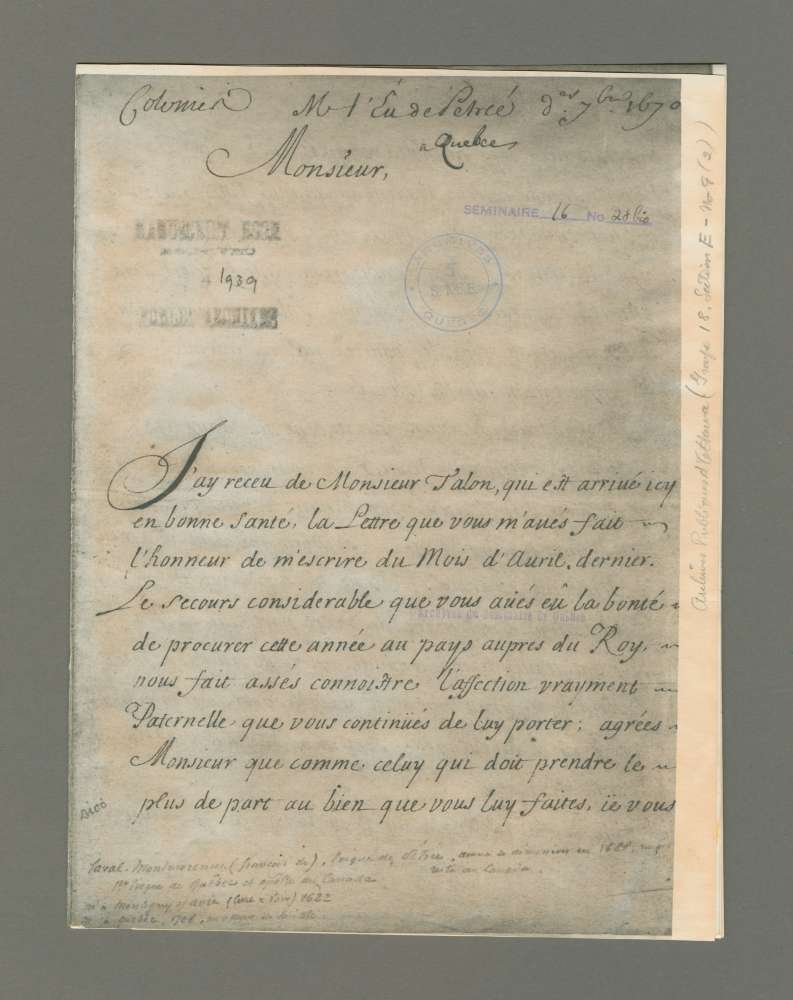 Colonies Mr l'Eu. de Petrée d. 7bre 1670
a Quebec
Monsieur,
SEMINAIRE 16 No 28 bis
ARCHIVES
QUEBEC
1939
J'ay receu de Monsieur Talon, qui est arriué icy
en bonne santé, la Lettre que vous m'aués fait
l'honneur de m'escrire du Mois d'Auril, dernier.
Le secours considerable que vous aués eû la bonté
ARCHIVES DU SEMINAIRE DE QUEBEC
de procurer cette année au pays aupres du Roy,
nous fait assés connoistre l'affection vrayment
Paternelle que vous continüés de luy porter; agrées
Monsieur que comme celuy qui doit prendre le
plus de part au bien que vous luy faites, ie vous
Laval-Montmorency (François de), évêque de Pétrée,
1er évêque de Québec et apôtre du Canada
né à Montigny 1622
à Québec, 1708,
Archives Publiques d'Ottawa (Groupe 18, Section E - No 9 (2))